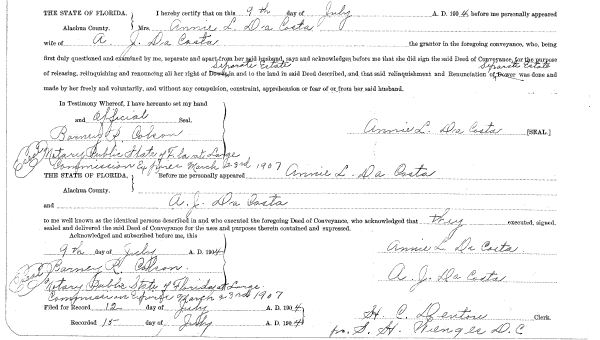 THE STATE OF FLORIDA, } I hereby certify that on this 9th day of July A. D. 1904, before me personally appeared
Alachua County. } Mrs. Annie L. Da Costa
wife of A. J. Da Costa the grantor in the foregoing conveyance, who, being
first duly questioned and examined by me, separate and apart from her said husband, says and acknowledges before me that she did sign the said Deed of Conveyance, for the purpose
Separate Estate Separate Estate
of releasing, relinquishing and renouncing all her right of Dower, in and to the land in said Deed described, and that said relinquishment and Renunciation of Dower was done and
made by her freely and voluntarily, and without any compulsion, constraint, apprehension or fear of or from her said husband.
In Testimony Whereof, I have hereunto set my hand
and official Seal.
Barney R. Colson Annie L. Da Costa [SEAL]
Notary Public State of Fla at Large
Commission Expires March 23rd 1907
THE STATE OF FLORIDA, Before me personally appeared Annie L. Da Costa
Alachua County.
and A. J. Da Costa
to me well known as the identical persons described in and who executed the foregoing Deed of Conveyance, who acknowledged that they executed, signed,
sealed and delivered the said Deed of Conveyance for the uses and purposes therein contained and expressed.
Acknowledged and subscribed before me, this
9th day of July A. D. 1904 Annie L. Da Costa
Seal Barney R. Colson A. J. Da Costa
Notary Public State of Florida at Large
Commission Expires March 23rd 1907
Filed for Record 12 day of July A. D. 1904 H. C. Denton Clerk.
Recorded 15 day of July A. D. 1904 pr. S. H. Wienges D. C